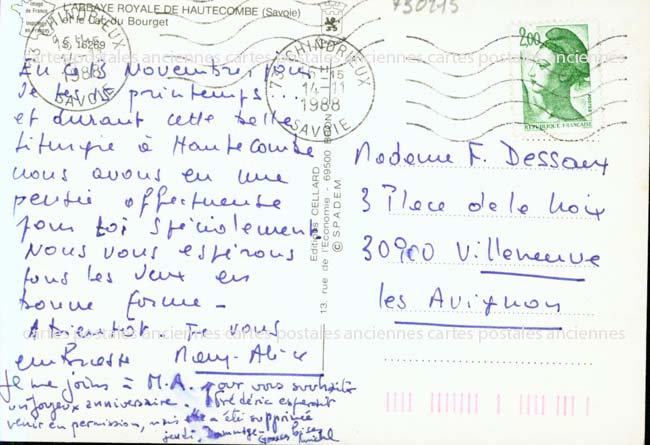 L'ABBAYE ROYALE DE HAUTECOMBE (Savoie)
et le Lac du Bourget
S. 16269
730215
73 CHINDRIEUX
1988
SAVOIE
73 CHINDRIEUX
15H15
14-11
1988
SAVOIE
2,00
REPUBLIQUE FRANÇAISE
En ces Novembre, jours
de printemps
et durant cette belle
liturgie à Hautecombe
nous avons eu une
pensée affectueuse
pour toi spécialement.
Nous vous espérons
tous les deux en
bonne forme -
A bientôt. Je vous
embrasse Mary-Alice
Je me joins à M.A. pour vous souhaiter
un joyeux anniversaire. Frédéric espérait
venir en permission, mais elle a été supprimée
jeudi. Dommage. Grosses bises
Editions CELLARD
13, rue de l'Economie - 69500 BRON
© SPADEM
Madame F. Dessaux
3 Place de la Croix
30900 Villeneuve
les Avignon
cartes postales anciennes cartes postales anciennes cartes postales anciennes